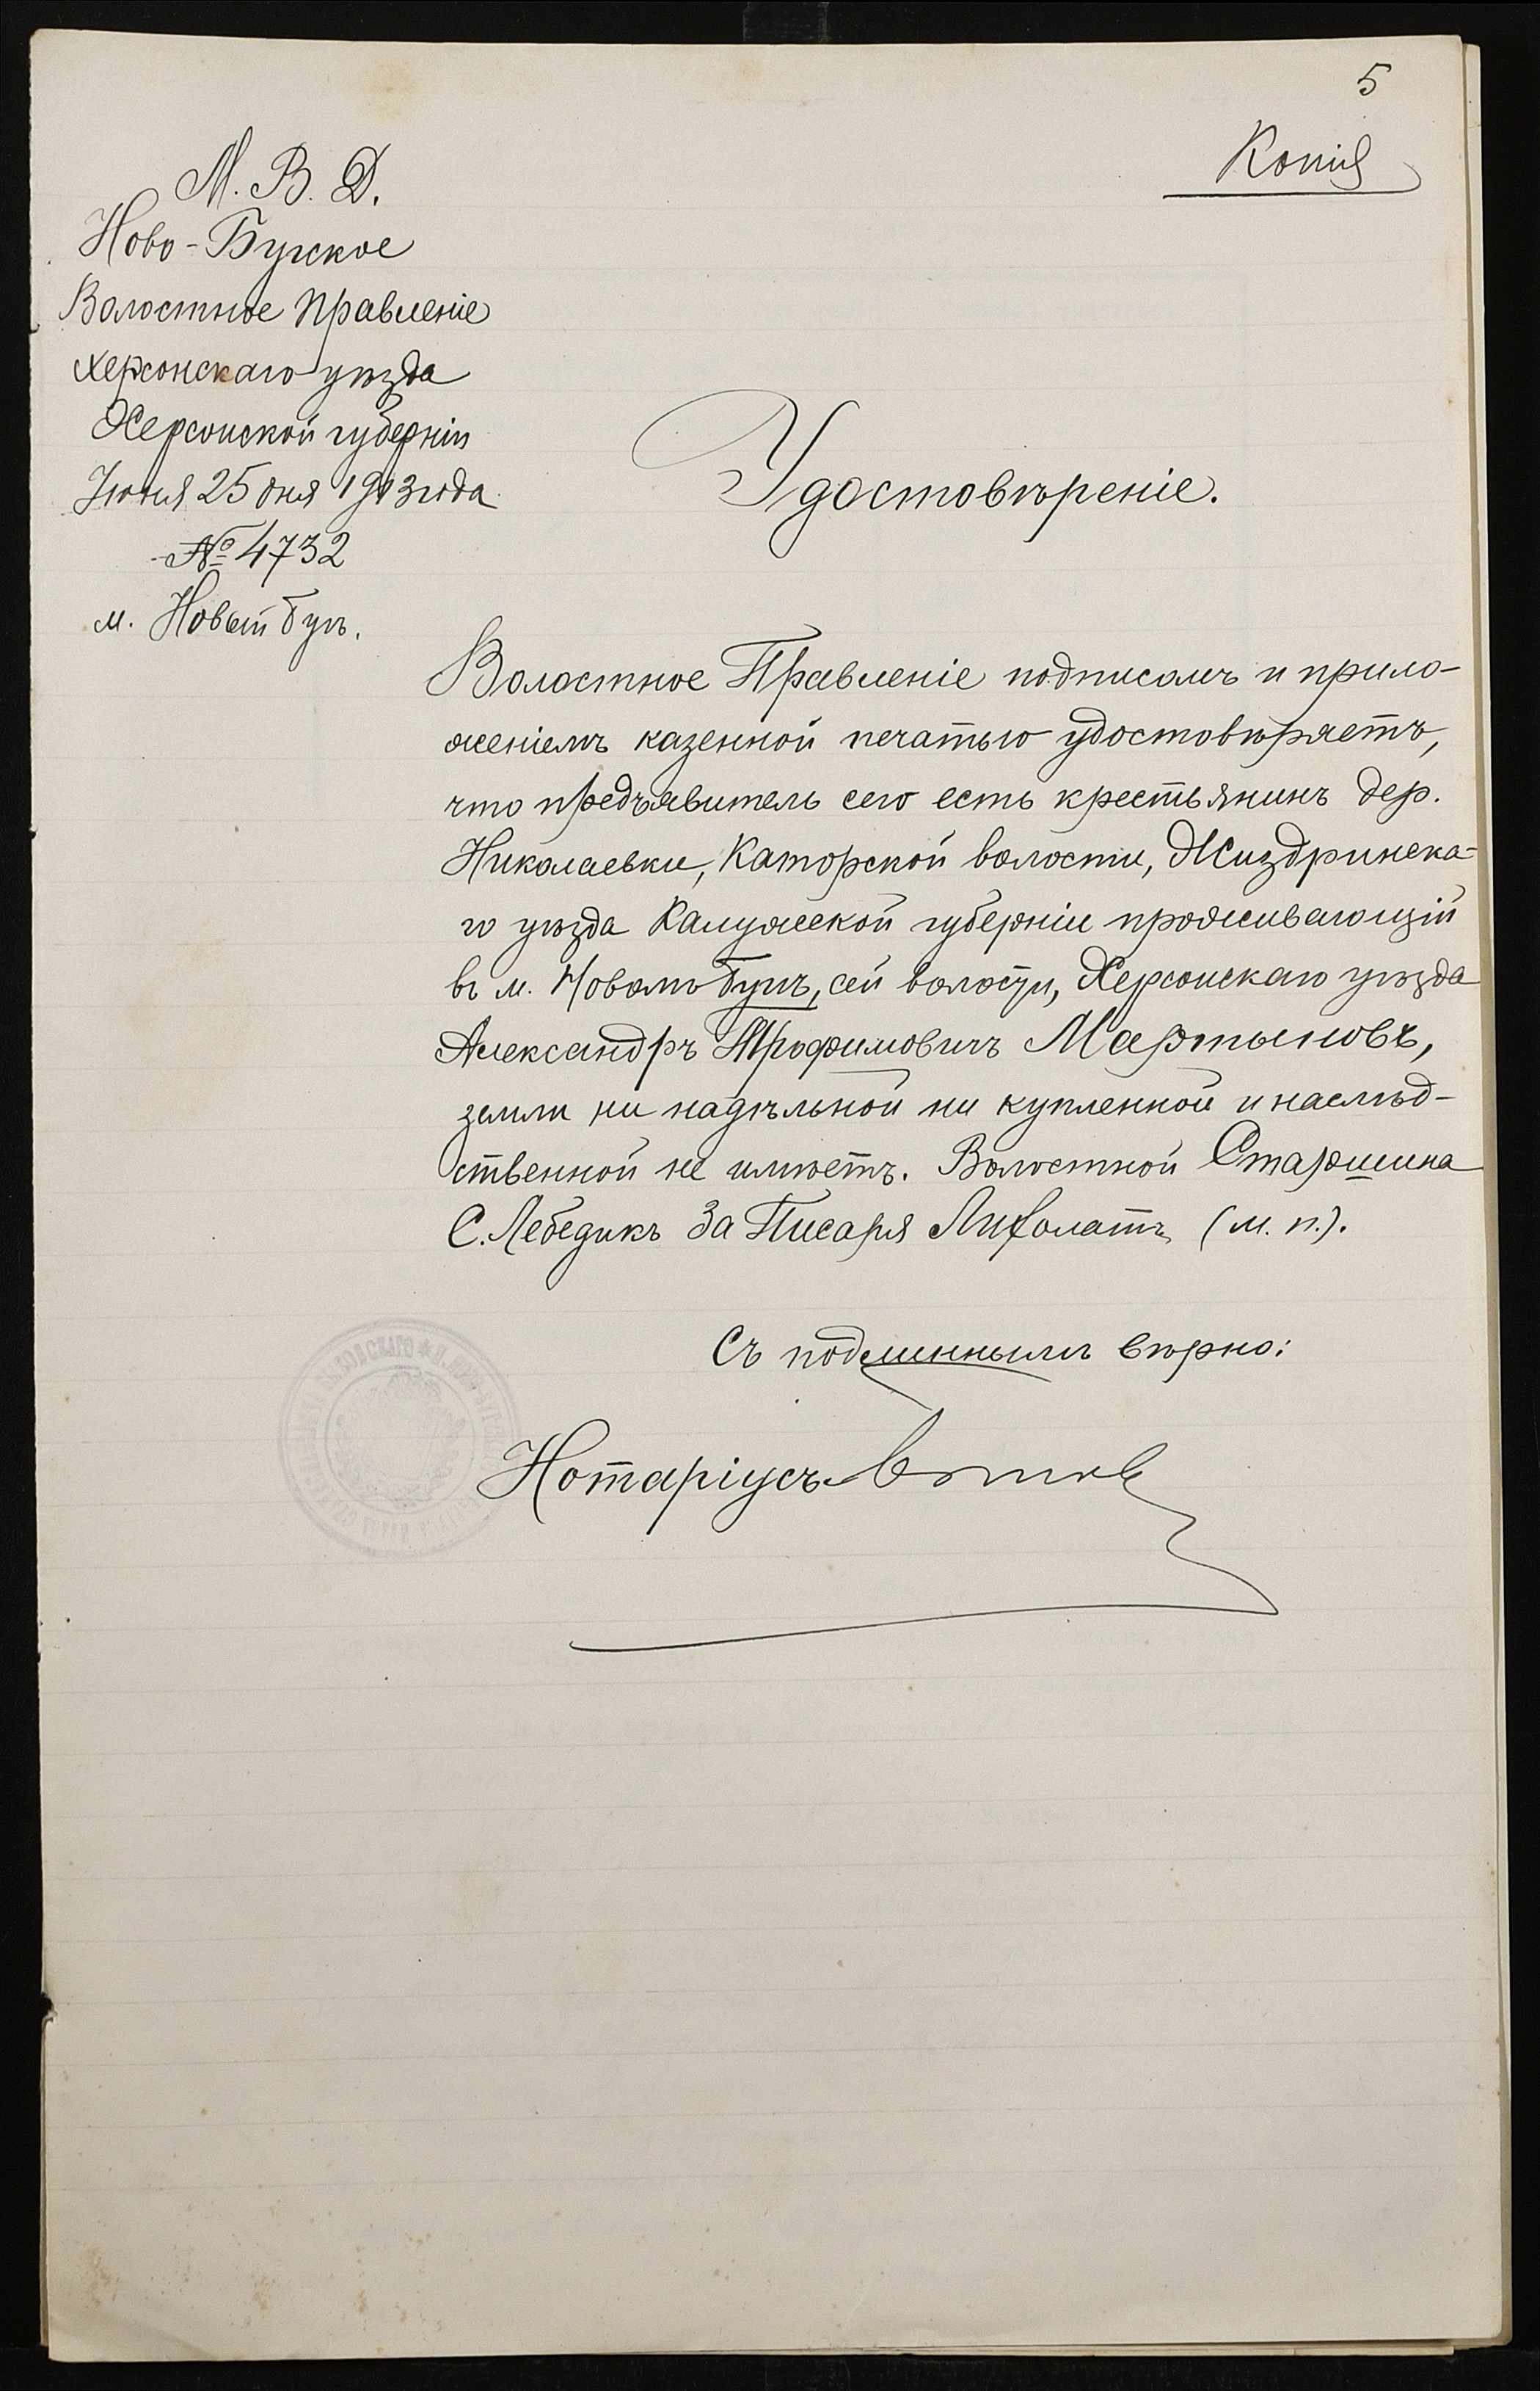 5
Копія
М. В. Д.
Ново-Бугское
Волостное Правленіе
Херсонскаго уѣзда
Херсонской губерніи
Іюня 25 дня 1913 года
№ 4732
м. Новый Бугъ.
Удостовѣреніе.
Волостное Правленіе подписомъ и прило-
женіемъ казенной печатью удостовѣряетъ,
что предъявитель сего есть крестьянинъ дер.
Николаевки, Каторской волости, Жиздринска-
го уѣзда Калужской губерніи проживающій
въ м. Новомъ Бугѣ, сей волости, Херсонскаго уѣзда
Александръ Трофимовичъ Мартыновъ,
земли ни надѣльной ни купленной и наслѣд-
ственной не имѣетъ. Волостной Старшина
С. Лебедикъ За Писаря (м. п.).
Съ подлиннымъ вѣрно:
Нотаріусъ